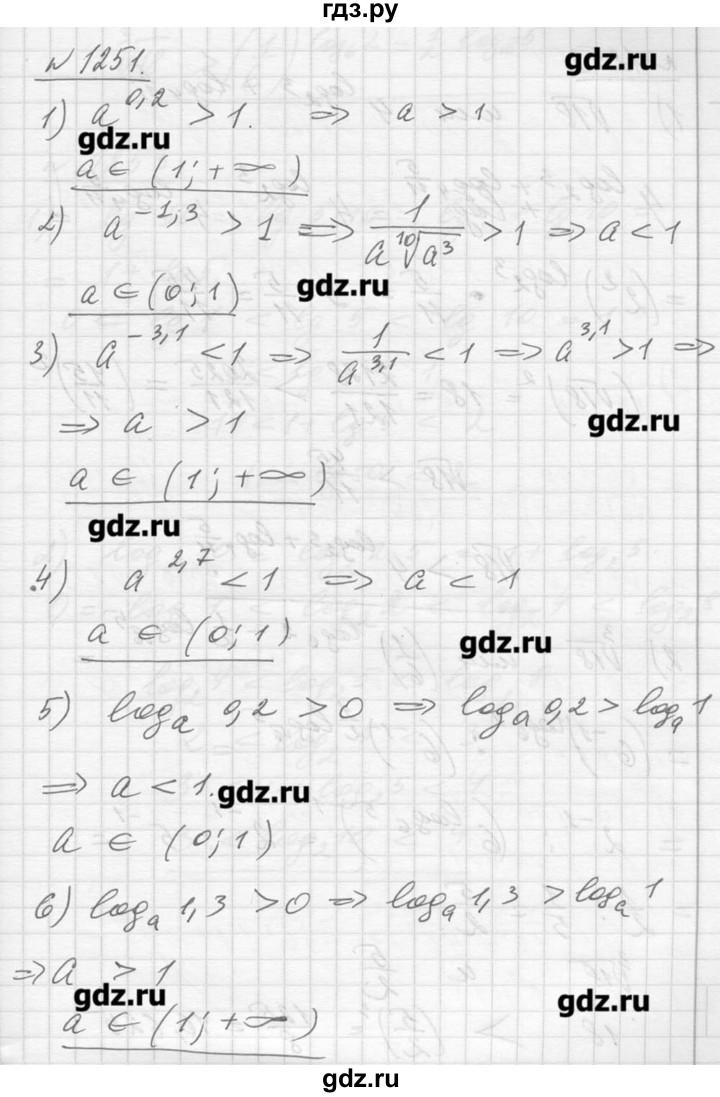 гдз.ру
N 1251.
gdz.ru
1) a^{0,2} > 1. ⇒ a > 1
gdz.ru
a ∈ (1; +∞)
2) a^{-1,3} > 1 ⇒ \frac{1}{a \sqrt[10]{a^3}} > 1 ⇒ a < 1
gdz.ru
a ∈ (0; 1)
3) a^{-3,1} < 1 ⇒ \frac{1}{a^{3,1}} < 1 ⇒ a^{3,1} > 1 ⇒
⇒ a > 1
gdz.ru
a ∈ (1; +∞)
gdz.ru
4) a^{2,7} < 1 ⇒ a < 1
a ∈ (0; 1)
gdz.ru
5) log_a 0,2 > 0 ⇒ log_a 0,2 > log_a 1
⇒ a < 1.
gdz.ru
a ∈ (0; 1)
6) log_a 1,3 > 0 ⇒ log_a 1,3 > log_a 1
⇒ a > 1
gdz.ru
gdz.ru
a ∈ (1; +∞)
gdz.ru